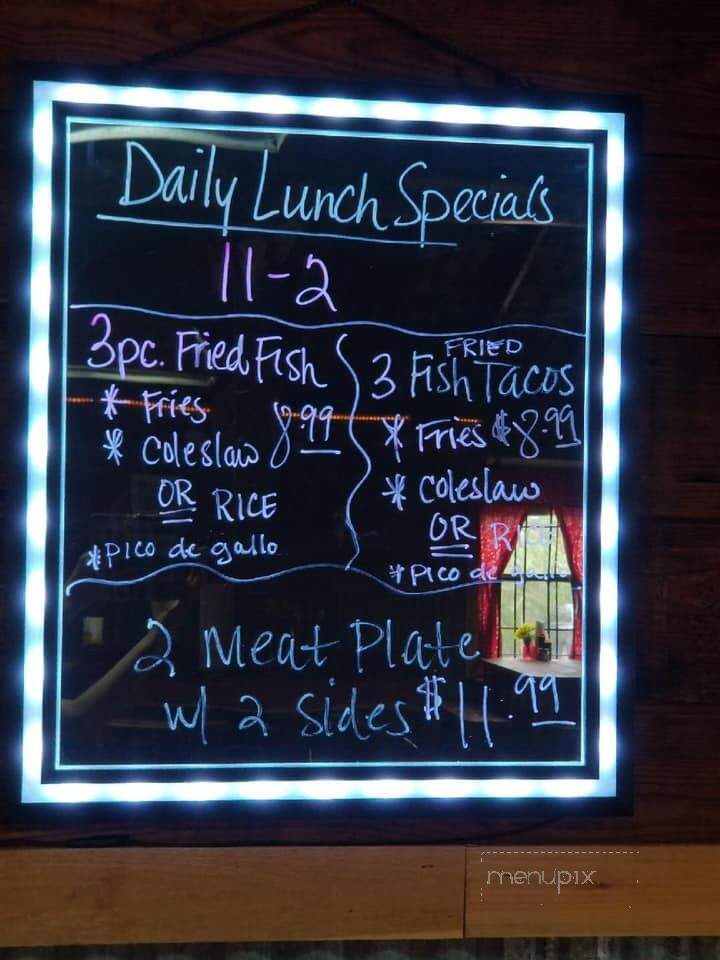 Daily Lunch Specials
11-2
3pc. Fried Fish
* Fries 8.99
* Coleslaw
OR RICE
*Pico de gallo
FRIED
3 Fish Tacos
* Fries $8.99
* Coleslaw
OR RICE
*Pico de gallo
2 Meat Plate
w/ 2 sides $11.99
menupix